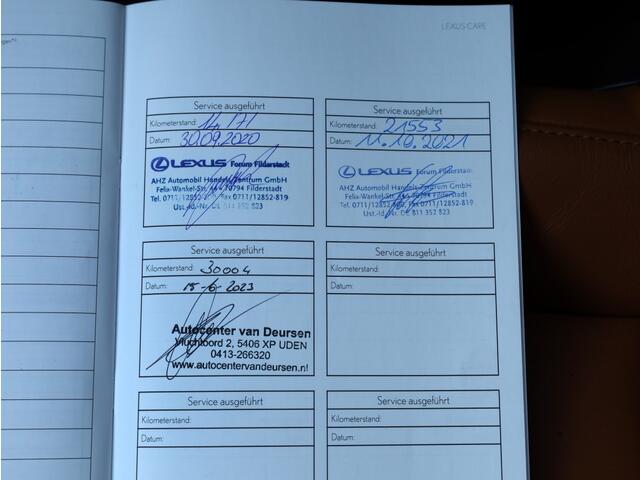 LEXUS CARE
Service ausgeführt
Kilometerstand: 14.171
Datum: 30.09.2020
LEXUS Forum Filderstadt
AHZ Automobil Handels Zentrum GmbH
Felix-Wankel-Str. 70794 Filderstadt
Tel. 0711/12852-800, Fax 0711/12852-819
Ust.-Id.-Nr. DE 811 352 823
Service ausgeführt
Kilometerstand: 21553
Datum: 11.10.2021
LEXUS Forum Filderstadt
AHZ Automobil Handels-Zentrum GmbH
Felix-Wankel-Str. 70794 Filderstadt
Tel. 0711/12852-800, Fax 0711/12852-819
Ust.-Id.-Nr. DE 811 352 823
Service ausgeführt
Kilometerstand: 30004
Datum: 15-6-2023
Autocenter van Deursen
Vluchtoord 2, 5406 XP UDEN
0413-266320
www.autocentervandeursen.nl
Service ausgeführt
Kilometerstand:
Datum:
Service ausgeführt
Kilometerstand:
Datum:
Service ausgeführt
Kilometerstand:
Datum: